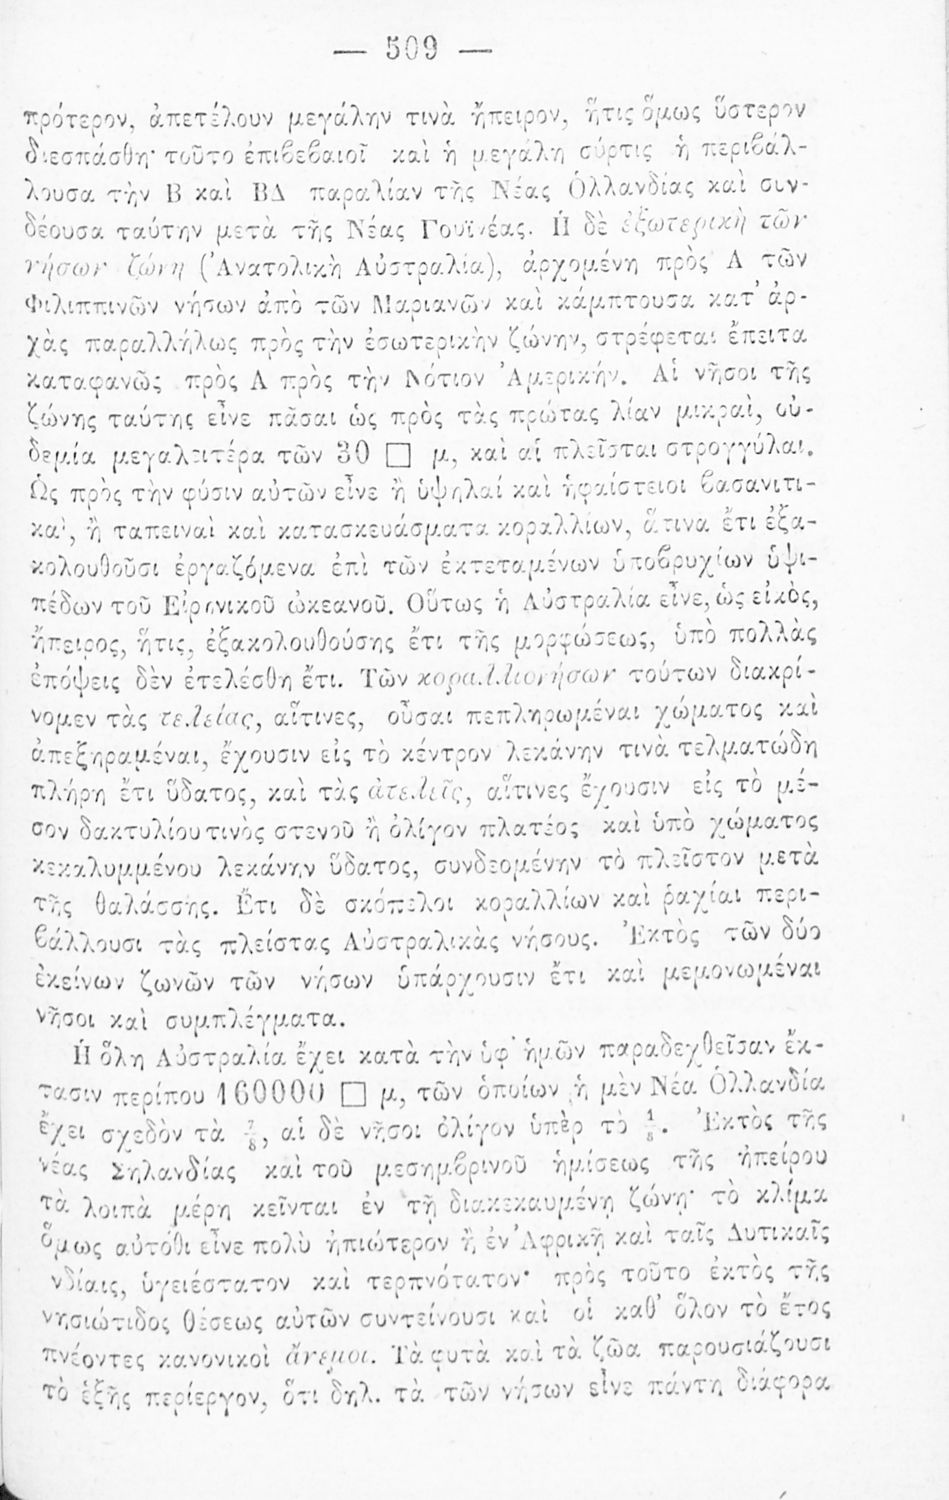 — 509 —
πρότερον, ἀπετέλουν μεγάλην τινὰ ἤπειρον, ἥτις ὅμως ὕστερον
διεσπάσθη· τοῦτο ἐπιβεβαιοῖ καὶ ἡ μεγάλη σύρτις ἡ περιβάλ-
λουσα τὴν Β καὶ ΒΔ παραλίαν τῆς Νέας Ὁλλανδίας καὶ συν-
δέουσα ταύτην μετὰ τῆς Νέας Γουϊνέας. Ἡ δὲ ἐξωτερικὴ τῶν
νήσων ζώνη (Ἀνατολικὴ Αὐστραλία), ἀρχομένη πρὸς Α τῶν
Φιλιππινῶν νήσων ἀπὸ τῶν Μαριανῶν καὶ κάμπτουσα κατ’ ἀρ-
χὰς παραλλήλως πρὸς τὴν ἐσωτερικὴν ζώνην, στρέφεται ἔπειτα
καταφανῶς πρὸς Α πρὸς τὴν Νότιον Ἀμερικήν. Αἱ νῆσοι τῆς
ζώνης ταύτης εἶνε πᾶσαι ὡς πρὸς τὰς πρώτας λίαν μικραὶ, οὐ-
δεμία μεγαλειτέρα τῶν 30 □ μ, καὶ αἱ πλεῖσται στρογγύλαι.
Ὡς πρὸς τὴν φύσιν αὐτῶν εἶνε ἢ ὑψηλαί καὶ ἡφαίστειοι βασανιτι-
καὶ, ἢ ταπειναὶ καὶ κατασκευάσματα κοραλλίων, ἅτινα ἔτι ἐξα-
κολουθοῦσι ἐργαζόμενα ἐπὶ τῶν ἐκτεταμένων ὑποβρυχίων ὑψι-
πέδων τοῦ Εἰρηνικοῦ ὠκεανοῦ. Οὕτως ἡ Αὐστραλία εἶνε, ὡς εἰκὸς,
ἤπειρος, ἥτις, ἐξακολουθούσης ἔτι τῆς μορφώσεως, ὑπὸ πολλὰς
ἐπόψεις δὲν ἐτελέσθη ἔτι. Τῶν κοραλλιονήσων τούτων διακρί-
νομεν τὰς τελείας, αἵτινες, οὖσαι πεπληρωμέναι χώματος καὶ
ἀπεξηραμέναι, ἔχουσιν εἰς τὸ κέντρον λεκάνην τινὰ τελματώδη
πλήρη ἔτι ὕδατος, καὶ τὰς ἀτελεῖς, αἵτινες ἔχουσιν εἰς τὸ μέ-
σον δακτυλίου τινὸς στενοῦ ἢ ὀλίγον πλατέος καὶ ὑπὸ χώματος
κεκαλυμμένου λεκάνην ὕδατος, συνδεομένην τὸ πλεῖστον μετὰ
τῆς θαλάσσης. Ἔτι δὲ σκόπελοι κοραλλίων καὶ ῥαχίαι περι-
βάλλουσι τὰς πλείστας Αὐστραλικὰς νήσους. Ἐκτὸς τῶν δύο
ἐκείνων ζωνῶν τῶν νήσων ὑπάρχουσιν ἔτι καὶ μεμονωμέναι
νῆσοι καὶ συμπλέγματα.
Ἡ ὅλη Αὐστραλία ἔχει κατὰ τὴν ὑφ’ ἡμῶν παραδεχθεῖσαν ἔκ-
τασιν περίπου 160000 □ μ, τῶν ὁποίων ἡ μὲν Νέα Ὁλλανδία
ἔχει σχεδὸν τὰ 7/8, αἱ δὲ νῆσοι ὀλίγον ὑπὲρ τὸ 1/8. Ἐκτὸς τῆς
νέας Σηλανδίας καὶ τοῦ μεσημβρινοῦ ἡμίσεως τῆς ἠπείρου
τὰ λοιπὰ μέρη κεῖνται ἐν τῇ διακεκαυμένῃ ζώνῃ· τὸ κλίμα
ὅμως αὐτόθι εἶνε πολὺ ἠπιώτερον ἢ ἐν Ἀφρικῇ καὶ ταῖς Δυτικαῖς
νδίαις, ὑγειέστατον καὶ τερπνότατον· πρὸς τοῦτο ἐκτὸς τῆς
νησιώτιδος θέσεως αὐτῶν συντείνουσι καὶ οἱ καθ’ ὅλον τὸ ἔτος
πνέοντες κανονικοὶ ἄνεμοι. Τὰ φυτὰ καὶ τὰ ζῶα παρουσιάζουσι
τὸ ἑξῆς περίεργον, ὅτι δηλ. τὰ τῶν νήσων εἶνε πάντη διάφορα